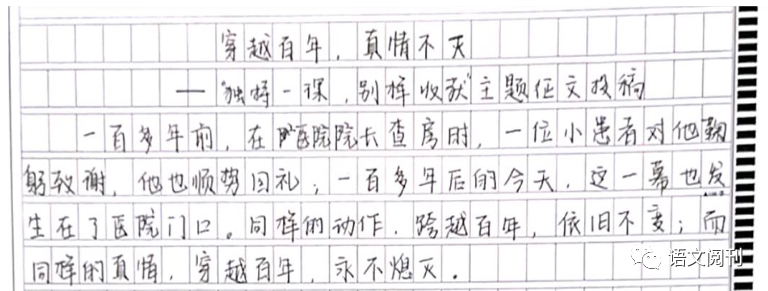 穿越百年，真情不灭
——"独特一课，别样收获"主题征文投稿
一百多年前，在医院院长查房时，一位小患者对他鞠
躬致谢，他也顺势回礼；一百多年后的今天，这一幕也发
生在了医院门口。同样的动作，跨越百年，依旧不变；而
同样的真情，穿越百年，永不熄灭。
语文阅刊